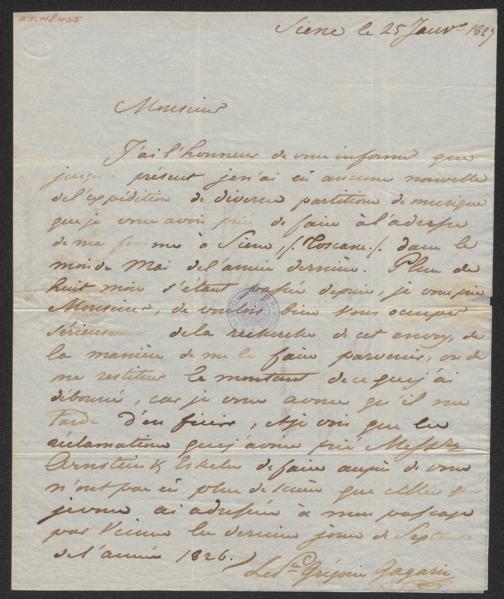 Siene le 25 Janv.
Monsieur
J'ai l'honneur de vous informer que
jusqu'à présent je n'ai eû aucune nouvelle
de l'expédition de diverses partitions de musique
que je vous avois prié de faire à l'adresse
de ma femme à Siene /: Toscane :/ dans le
mois de Mai de l'année dernière. Plus de
huit mois s'étant passés depuis, je vous prie
Monsieur, de vouloir bien vous occuper
sérieusement de la recherche de cet envoy, de
la manière de me le faire parvenir, ou de
me restituer le montant de ce que j'ai
déboursé, car je vous avoue qu'il me
tarde d'en finir, et je vois que les
réclamations que j'avois prié Mess.rs
Arnstein & Eskeles de faire auprès de vous
n'ont pas eû plus de succès que celles que
je vous ai adressées à mon passage
par Vienne les derniers jours de Septembre
de l'année 1826.
Le Grégoire Gagarin